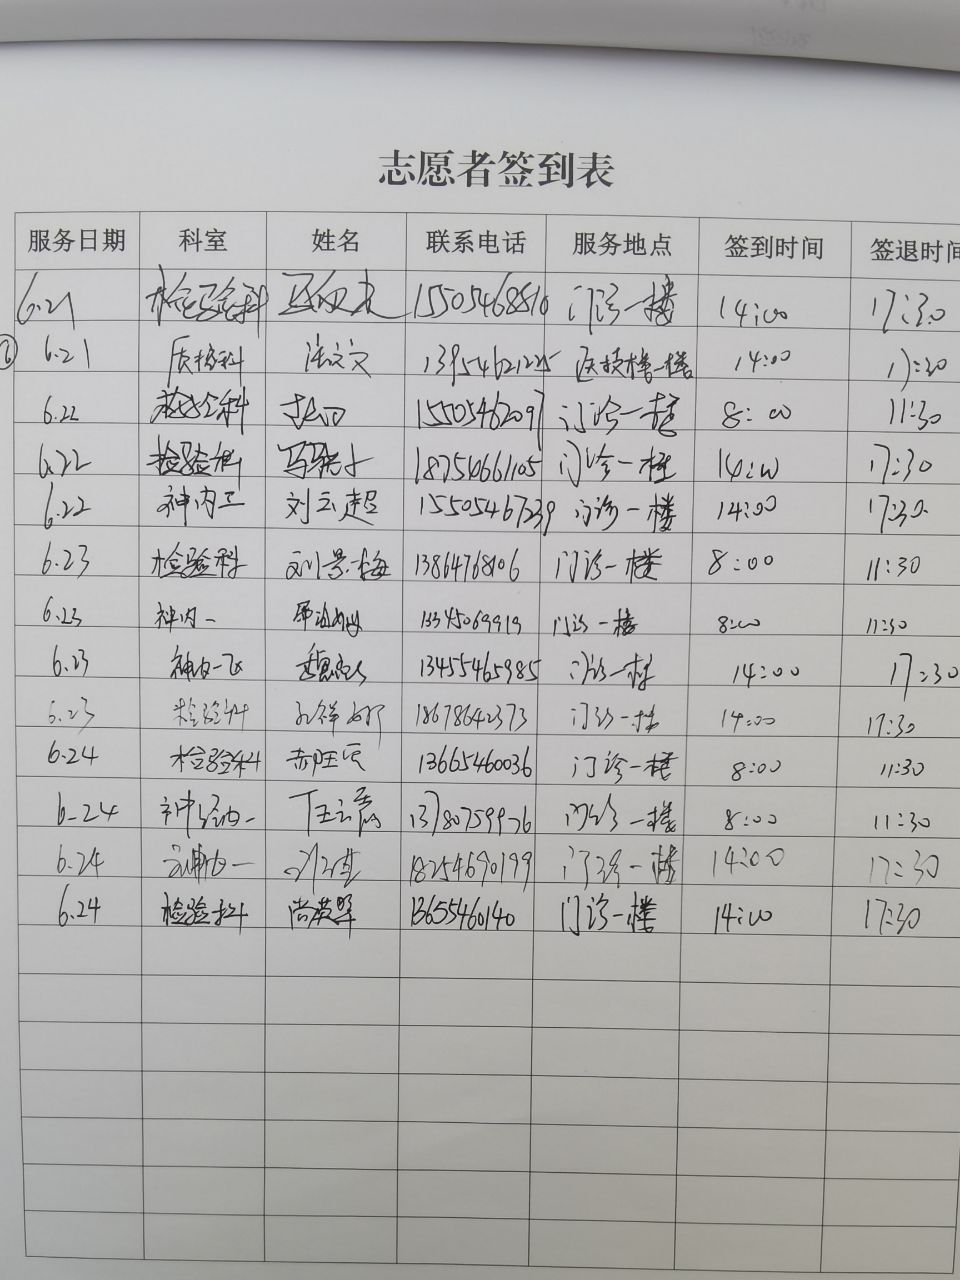 志愿者签到表
服务日期 科室 姓名 联系电话 服务地点 签到时间 签退时间
6.21 检验科 15505468810 门诊一楼 14:00 17:30
6.21 13954621225 医技楼一楼 14:00 17:30
6.22 检验科 1550546209 门诊一楼 8:00 11:30
6.22 检验科 18754661105 门诊一楼 14:00 17:30
6.22 神内二 刘云超 15505467239 门诊一楼 14:00 17:30
6.23 检验科 刘景梅 13864768106 门诊一楼 8:00 11:30
6.23 神内一 13345069919 门诊一楼 8:00 11:30
6.23 神内一 13455465985 门诊一楼 14:00 17:30
6.23 检验科 18678642373 门诊一楼 14:00 17:30
6.24 检验科 13665460036 门诊一楼 8:00 11:30
6.24 13780759976 门诊一楼 8:00 11:30
6.24 18254690199 门诊一楼 14:00 17:30
6.24 检验科 尚英翠 13655460140 门诊一楼 14:00 17:30